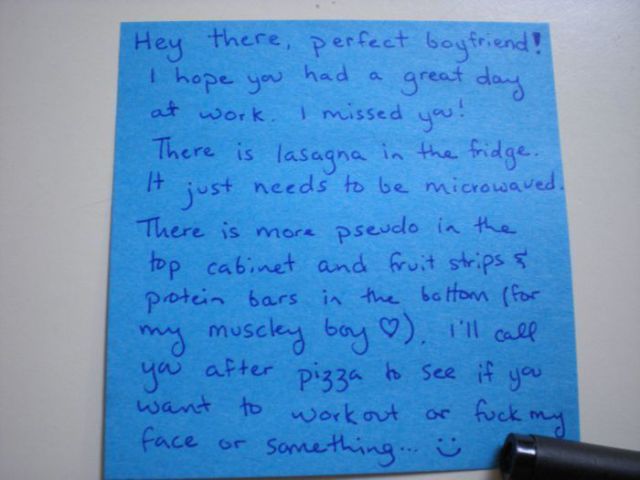 Hey there, perfect boyfriend!
I hope you had a great day
at work. I missed you!
There is lasagna in the fridge.
It just needs to be microwaved.
There is more pseudo in the
top cabinet and fruit strips &
protein bars in the bottom (for
my muscley boy ♡). I'll call
you after pizza to see if you
want to workout or fuck my
face or something... :)